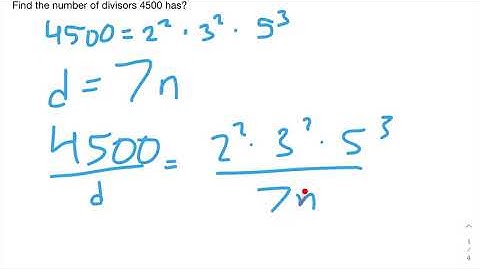 Find the number of divisors 4500 has?
4500 = 2² · 3² · 5³
d = 7n
4500/d = 2² · 3² · 5³/7n
1
/
4